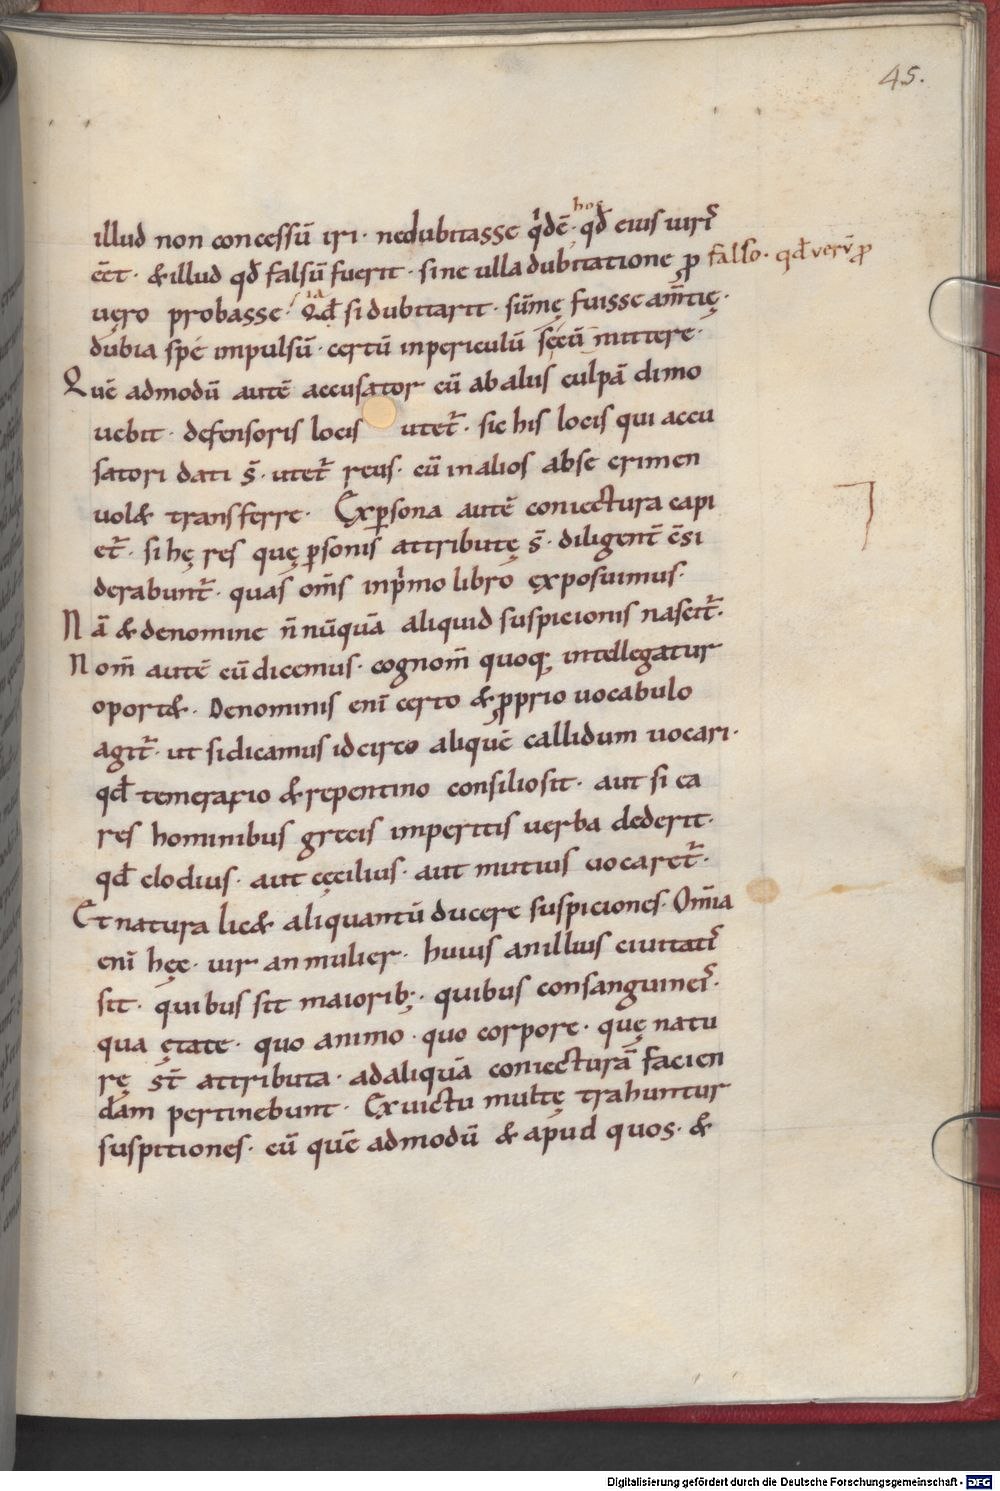 45.
hoc
illud non concessū iri · nec dubitasse qͥdē · qđ eius uiriˢ
eēt · & illud qđ falsū fuerit · sine ulla dubitatione ꝓ falso · qđ verū ꝓ
ia
uęro probasse · Qđ si dubitarit · sūmę fuisse am̄tię ·
dubia spe impulsū · certū in periculū se cū mittere ·
Quē admodū autē accusator cū ab alus culpā dimo
uebit · defensoris locis utet᷑ · sic his locis qui accu
satori dati s̄ · utet᷑ reus · cū in alios ab se crimen
uol& transferre · Ex ꝑsona autē coniectura capi
et᷑ · si hę res quę ꝑsonis attributę s̄ · diligent̄ c̄si
derabunt᷑ · quas om̄s in pͥmo libro exposuimus ·
Nā & de nomine n̄ nūquā aliquid suspicionis nascit᷑ ·
Nom̄ autē cū dicemus · cognom̄ quoq; intellegatur
oport& · De nominis eni certo & ꝓprio uocabulo
agit᷑ · ut si dicamus idcirco aliquē callidum uocari ·
qđ temerario & repentino consilio sit · aut si ea
res hominibus grecis imperitis uerba dederit ·
qđ clodius · aut cęcilius · aut mutius uocaret᷑ ·
Et natura lic& aliquantū ducere suspiciones · Om̄ia
eni hęc · uir an mulier · huius an illius ciuitatiˢ
sit · quibus sit maiorib; · quibus consanguineiˢ ·
qua ętate · quo animo · quo corpore · quę natu
rę st̄ attributa · ad aliquā coniecturā facien
dam pertinebunt · Ex uictu multę trahuntur
suspitiones · cū quē admodū & apud quos · &
Digitalisierung gefördert durch die Deutsche Forschungsgemeinschaft - DFG